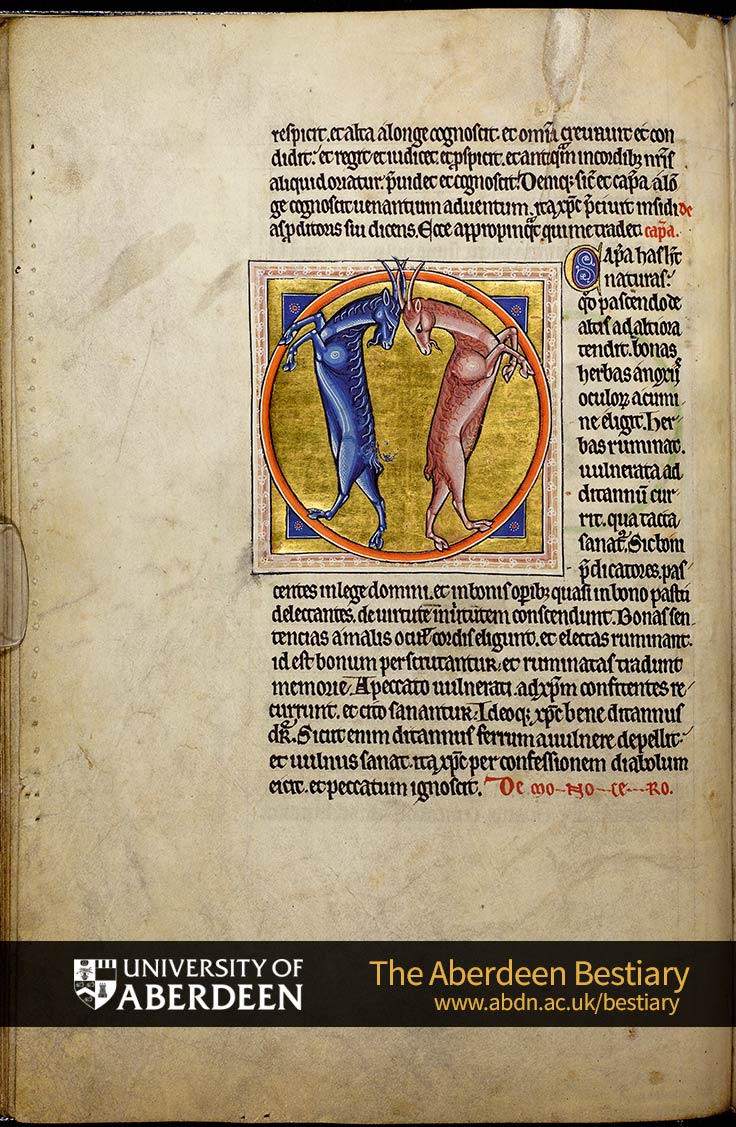 respicit. et alta a longe cognoscit. et om̄ia creauit et con
didit. et regit et iudicet. et ꝑspicit. et anteq̄m in cordibꝫ nr̄is
aliquid oriatur. p̄uidet et cognoscit. Deniqꝫ sic̄ et cap̄a a lō
ge cognoscit uenantium aduentum. ita xp̄c p̄ciuit insidi de
as ꝓditoris sui dicens. Ecce appropinq̄t qui me tradet. cap̄a.
Cap̄a has h̄t
naturas.
q̄o pascendo de
altis ad altiora
tendit. bonas
herbas a noxiis
oculoꝝ acumi
ne eligit. Her
bas ruminat.
uulnerata ad
ditannū cur
rit. qua tacta
sanat̄. Sic boni
p̄dicatores. pas
centes in lege domini. et in bonis opibꝫ quasi in bono pastu
delectantes. de uirtute in uirtutem conscendunt. Bonas sen
tencias a malis ocul̄ cordis eligunt. et electas ruminant.
id est bonum perscrutantur. et ruminatas tradunt
memorie. A peccato uulnerati. ad xp̄m confitentes re
currunt. et cito sanantur. Ideoqꝫ xp̄c bene ditannus
dr̄. Sicut enim ditannus ferrum a uulnere depellit.
et uulnus sanat. ita xp̄c per confessionem diabolum
eicit. et peccatum ignoscit. De mo-no-ce-ro.
UNIVERSITY OF
ABERDEEN
The Aberdeen Bestiary
www.abdn.ac.uk/bestiary